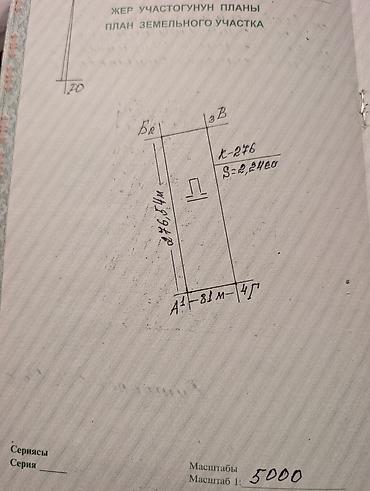 ЖЕР УЧАСТОГУНУН ПЛАНЫ
ПЛАН ЗЕМЕЛЬНОГО УЧАСТКА
Б2
3 В
К-276
S=2,24га
П
276,54м
А1
81 м
4 Г
Сериясы
Серия
Масштабы
Масштаб 1: 5000